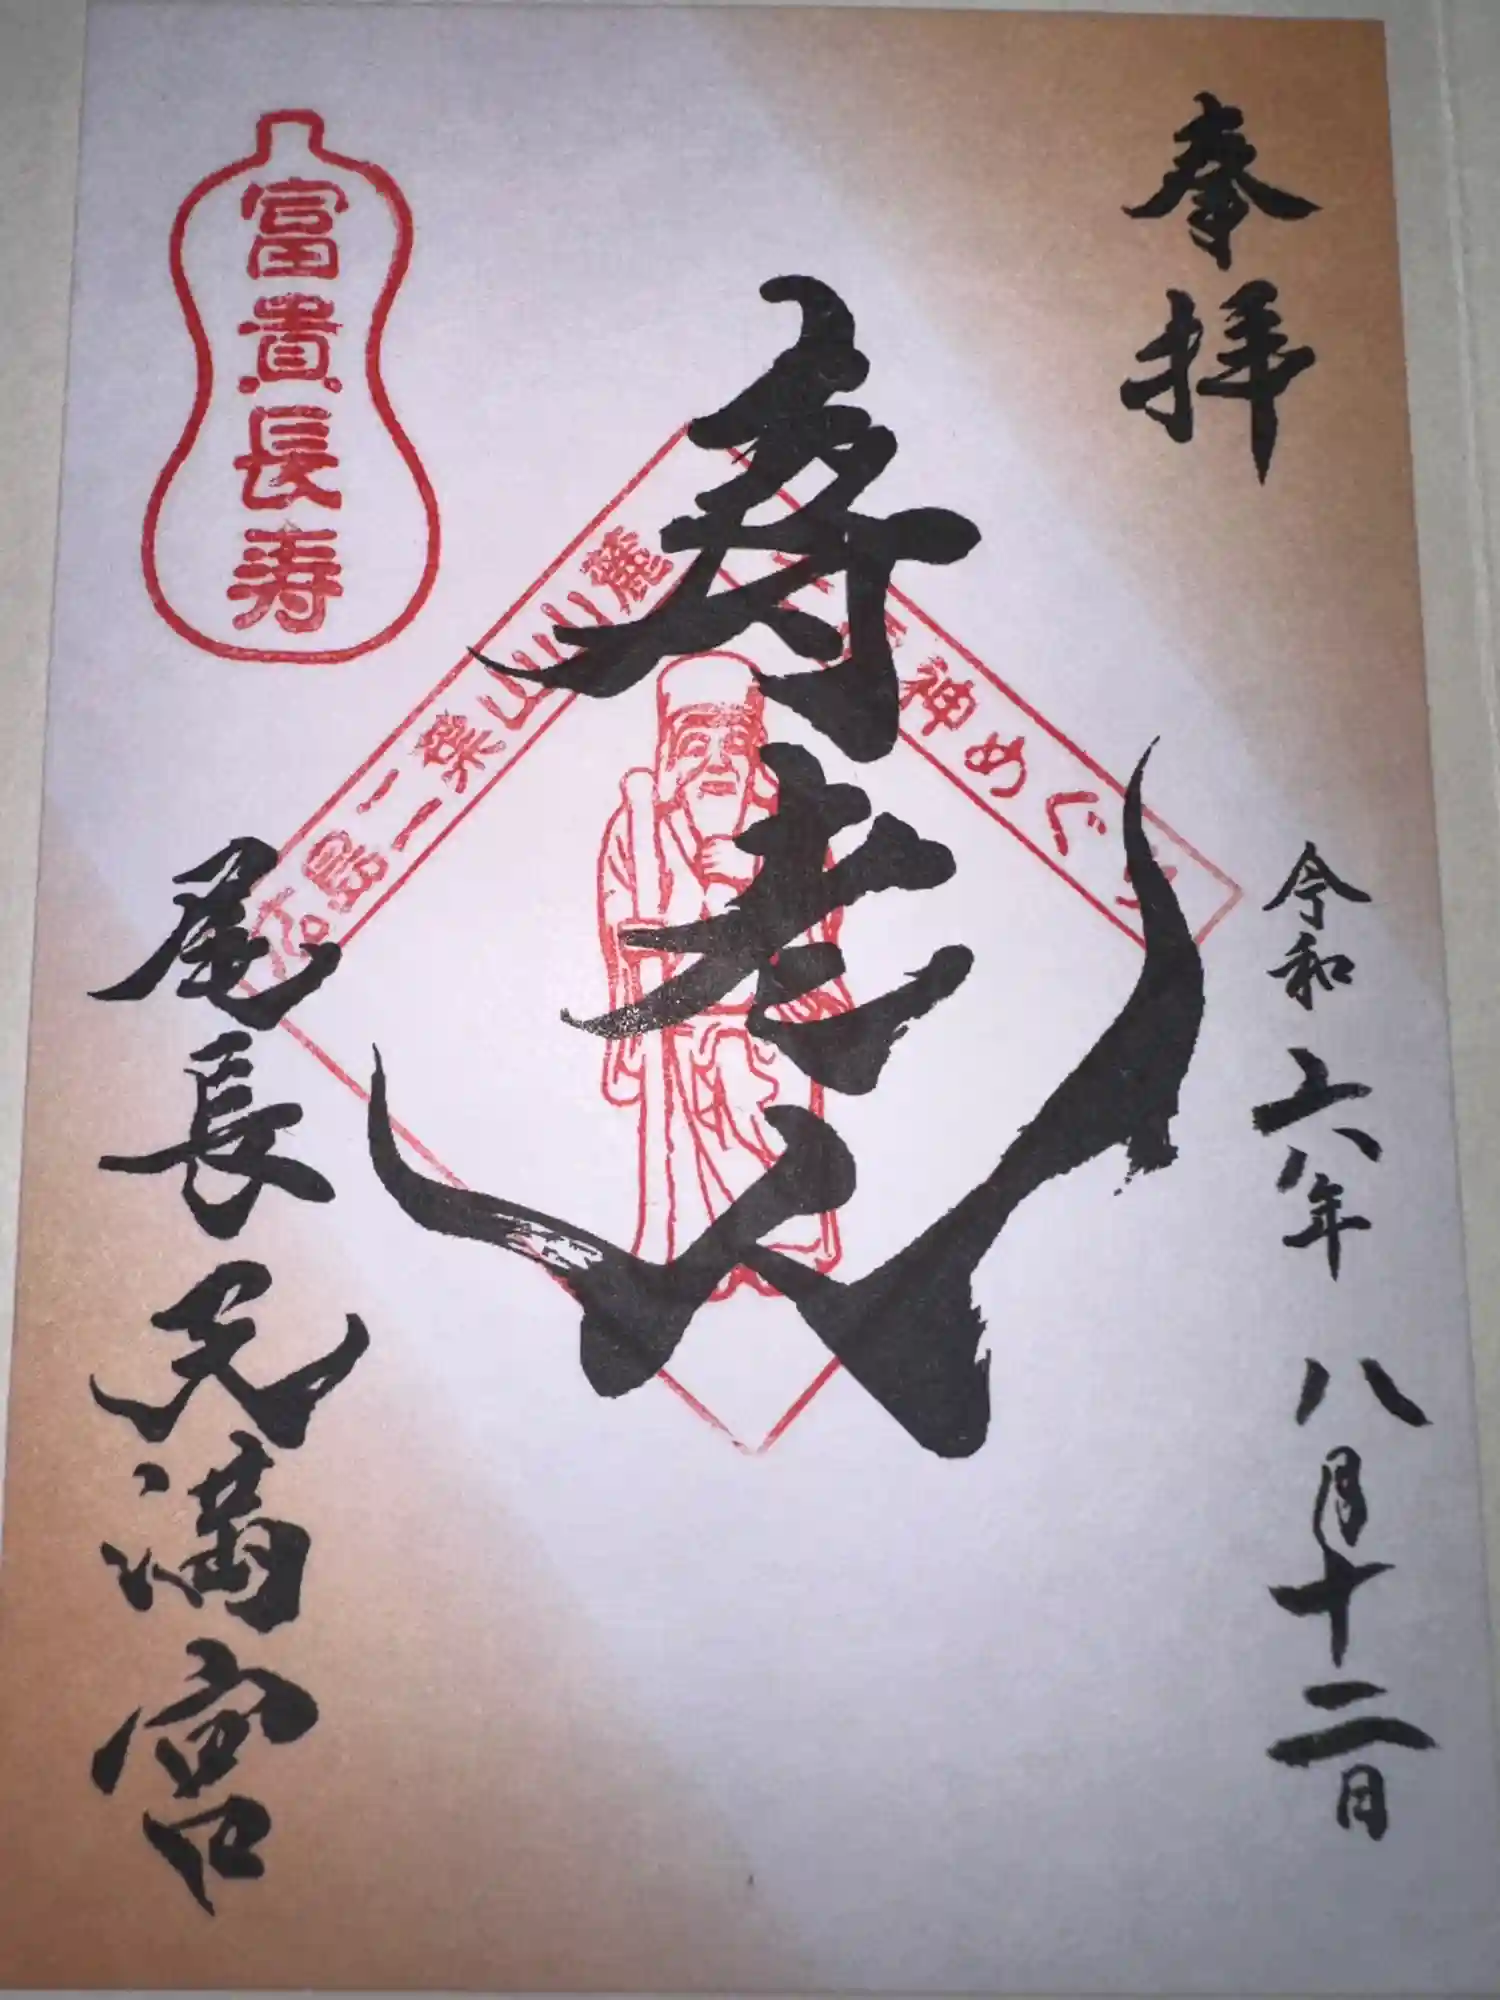 奉拝
令和六年 八月十二日
寿老人
広島二葉山山麓
神めぐり
富貴長寿
尾長天満宮